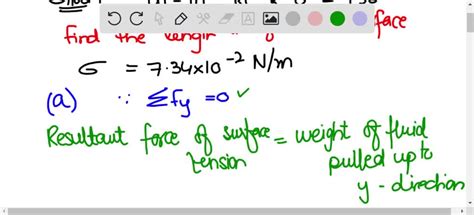 find the length face
σ = 7.34×10⁻² N/m
(a) ∵ Σfy = 0 ✓
Resultant force of surface tension = weight of fluid pulled up to y - direction